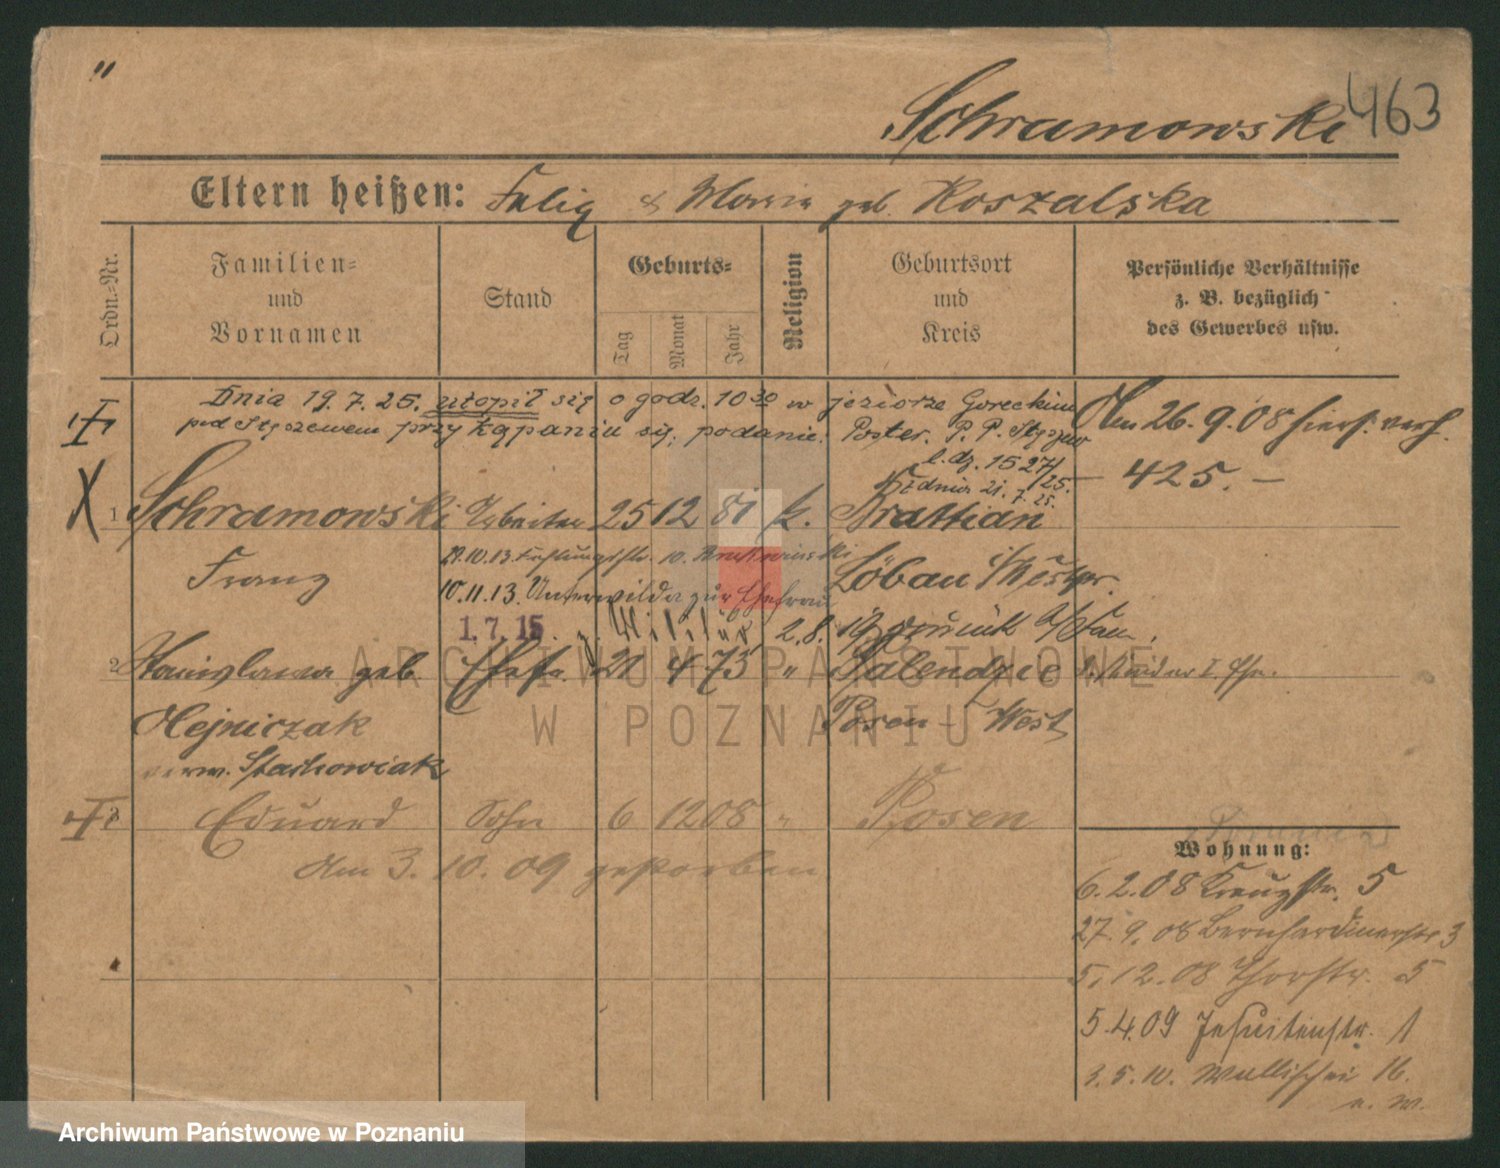 "
Schramowski 463
Eltern heißen: Felix & Maria geb. Koszalska
Ordn.-Nr.
Familien-
und
Vornamen
Stand
Geburts-
Tag
Monat
Jahr
Religion
Geburtsort
und
Kreis
Persönliche Verhältnisse
z. B. bezüglich
des Gewerbes usw.
Dnia 19.7.25. utopił się o godz. 10 30 w jeziorze Goreckim
pod przy kąpaniu się, podanie: Poster. P. P.
l.dz. 1527/25.
dnia 21.7.25.
Am 26.9.08 hiers. verh.
— 425. —
1 Schramowski Arbeiter 25 12 81 k. Brattian
Franz
Löbau Westpr.
10.11.13. Unterwilda zur Ehefrau
1.7.15 Militär 2.8.19
2 Stanislawa geb. Ehefr. 21 4 73 " Palendzie
Olejniczak Posen - West
verw. Stachowiak
3 Eduard Sohn 6 12 08 " Posen
Am 3.10.09 gestorben
Wohnung:
6.2.08 Kreuzstr. 5
27.9.08 Bernhardinerstr. 3
5.12.08 Thorstr. 5
5.4.09 Jesuitenstr. 1
3.5.10. Wallischei 16.
u. w.
ARCHIWUM PAŃSTWOWE
W POZNANIU
Archiwum Państwowe w Poznaniu